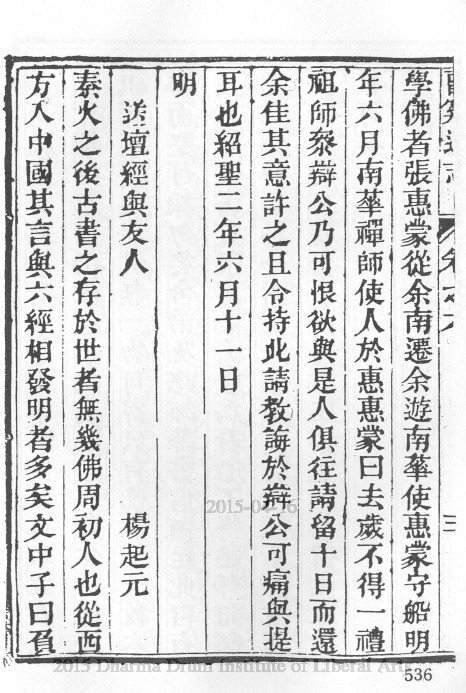 學佛者張惠蒙從余南遷余遊南華使惠蒙守船明
年六月南華禪師使人於惠惠蒙曰去歲不得一禮
祖師叅辯公乃可恨欲與是人俱往請留十日而還
余佳其意許之且令持此請教誨於辯公可痛與提
耳也紹聖二年六月十一日
明
送壇經與友人
楊起元
秦火之後古書之存於世者無幾佛周初人也從西
方入中國其言與六經相發明者多矣文中子曰負
2015-04-16
2015 Dharma Drum Institute of Liberal Arts
536